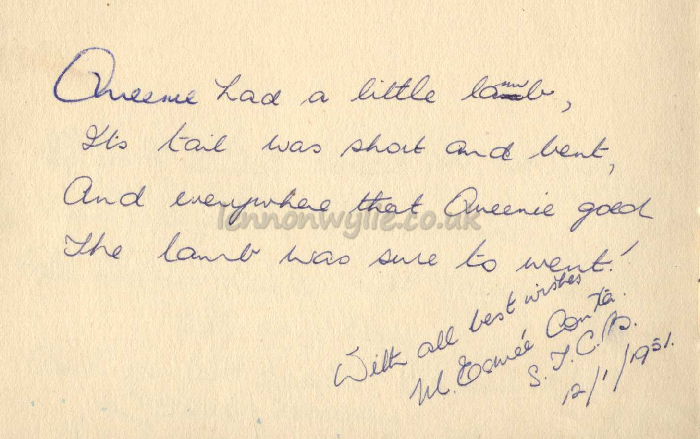 Queenie had a little lamb,
Its tail was short and bent,
And everywhere that Queenie goed
The lamb was sure to went!
lennonwylie.co.uk
With all best wishes
M. Esmée
S. T. C. D.
12/1/1931.